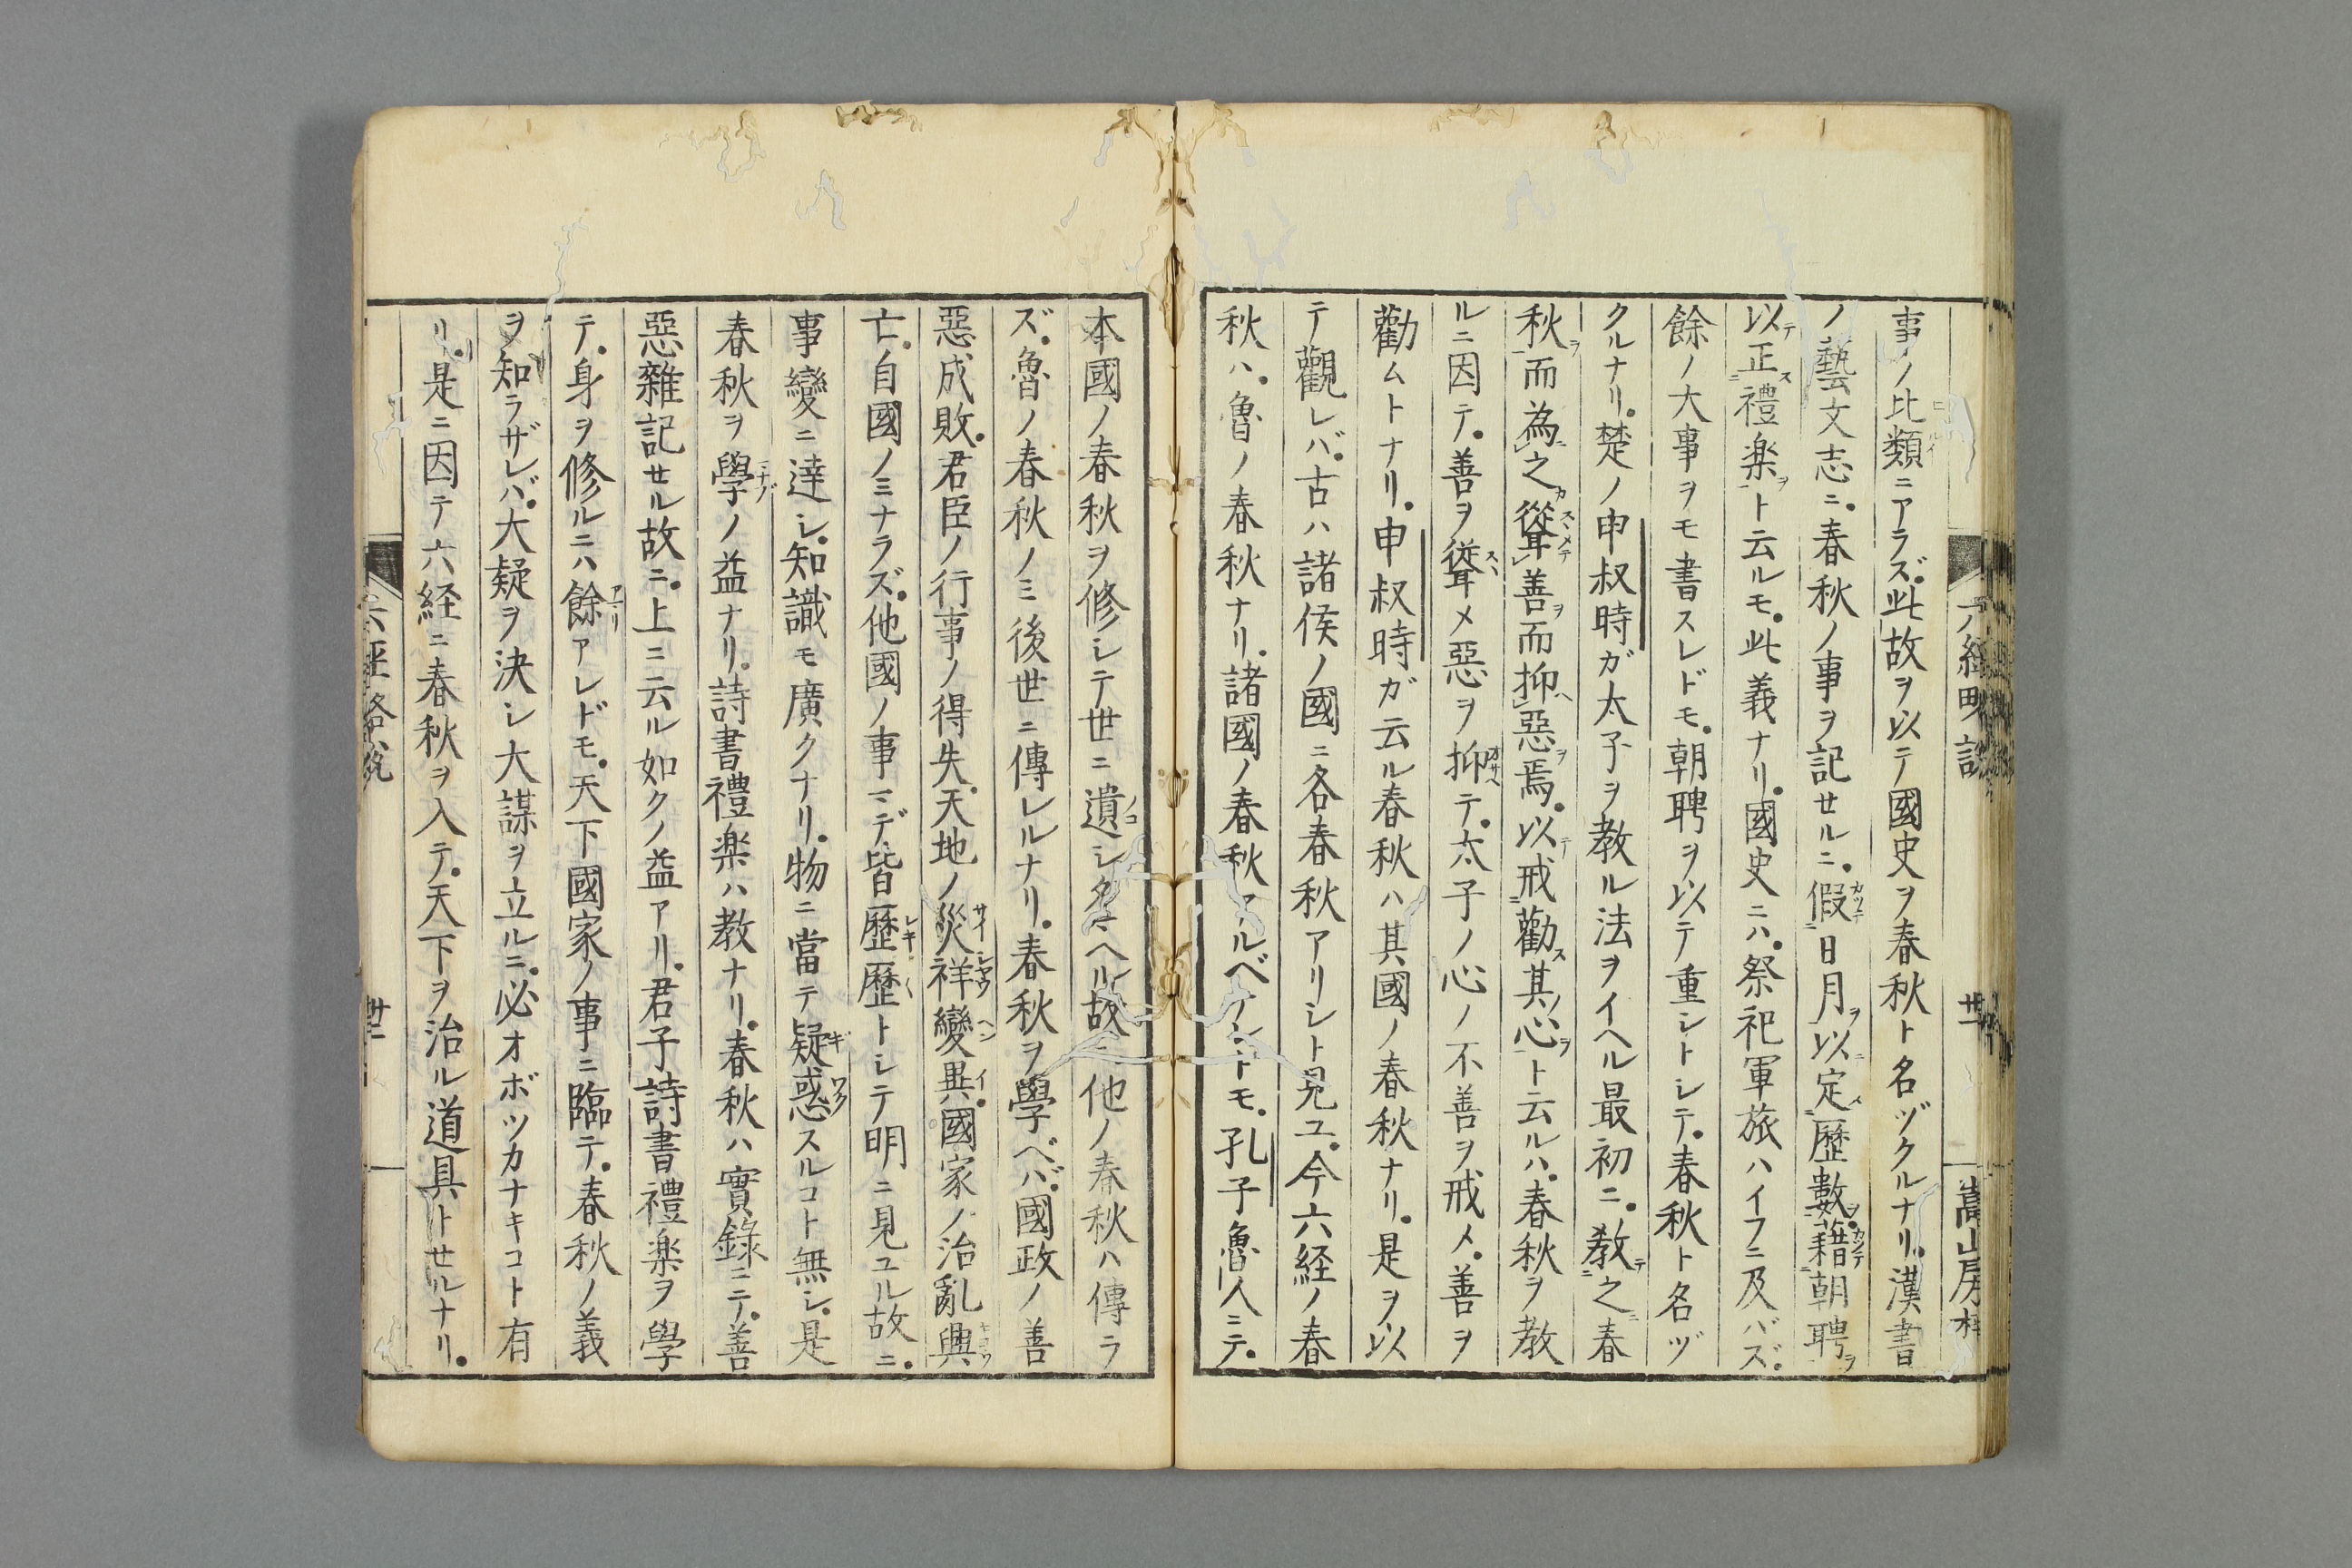 事ノ比類ニアラズ。此故ヲ以テ國史ヲ春秋ト名ヅクルナリ。漢書
ノ藝文志ニ。春秋ノ事ヲ記セルニ。假日月ヲ以定歷數ヲ。藉朝聘ヲ
以テ正ス禮楽ヲト云ルモ。此義ナリ。國史ニハ。祭祀軍旅ハイフニ及バズ。
餘ノ大事ヲモ書スレドモ。朝聘ヲ以テ重シトシテ。春秋ト名ヅ
クルナリ。楚ノ申叔時ガ太子ヲ教ル法ヲイヘル最初ニ。教テ之ニ春
秋ヲ而為ニ之カ聳善ヲ而抑惡ヲ焉。以テ戒勸ス其ノ心ヲト云ルハ。春秋ヲ教
ルニ因テ。善ヲ聳メ惡ヲ抑テ。太子ノ心ノ不善ヲ戒メ。善ヲ
勸ムトナリ。申叔時ガ云ル春秋ハ其國ノ春秋ナリ。是ヲ以
テ觀レバ。古ハ諸侯ノ國ニ各春秋アリシト見ユ。今六経ノ春
秋ハ。魯ノ春秋ナリ。諸國ノ春秋アルベケレドモ。孔子魯人ニテ。
六經略説
嵩山房梓
本國ノ春秋ヲ修シテ世ニ遺シ玉ヘル故ニ他ノ春秋ハ傳ラ
ズ。魯ノ春秋ノミ後世ニ傳レルナリ。春秋ヲ學ベバ。國政ノ善
惡成敗。君臣ノ行事ノ得失。天地ノ災祥變異。國家ノ治亂興
亡。自國ノミナラズ。他國ノ事マデ。皆歷歷トシテ明ニ見ユル故ニ。
事變ニ達シ。知識モ廣クナリ。物ニ當テ疑惑スルコト無シ。是
春秋ヲ學ノ益ナリ。詩書禮楽ハ教ナリ。春秋ハ實錄ニテ。善
惡雜記セル故ニ。上ニ云ル如クノ益アリ。君子詩書禮楽ヲ學
テ。身ヲ修ルニハ餘アレドモ。天下國家ノ事ニ臨テ。春秋ノ義
ヲ知ラザレバ。大疑ヲ決シ大謀ヲ立ルニ。必オボツカナキコト有
リ。是ニ因テ六経ニ春秋ヲ入テ。天下ヲ治ル道具トセルナリ。